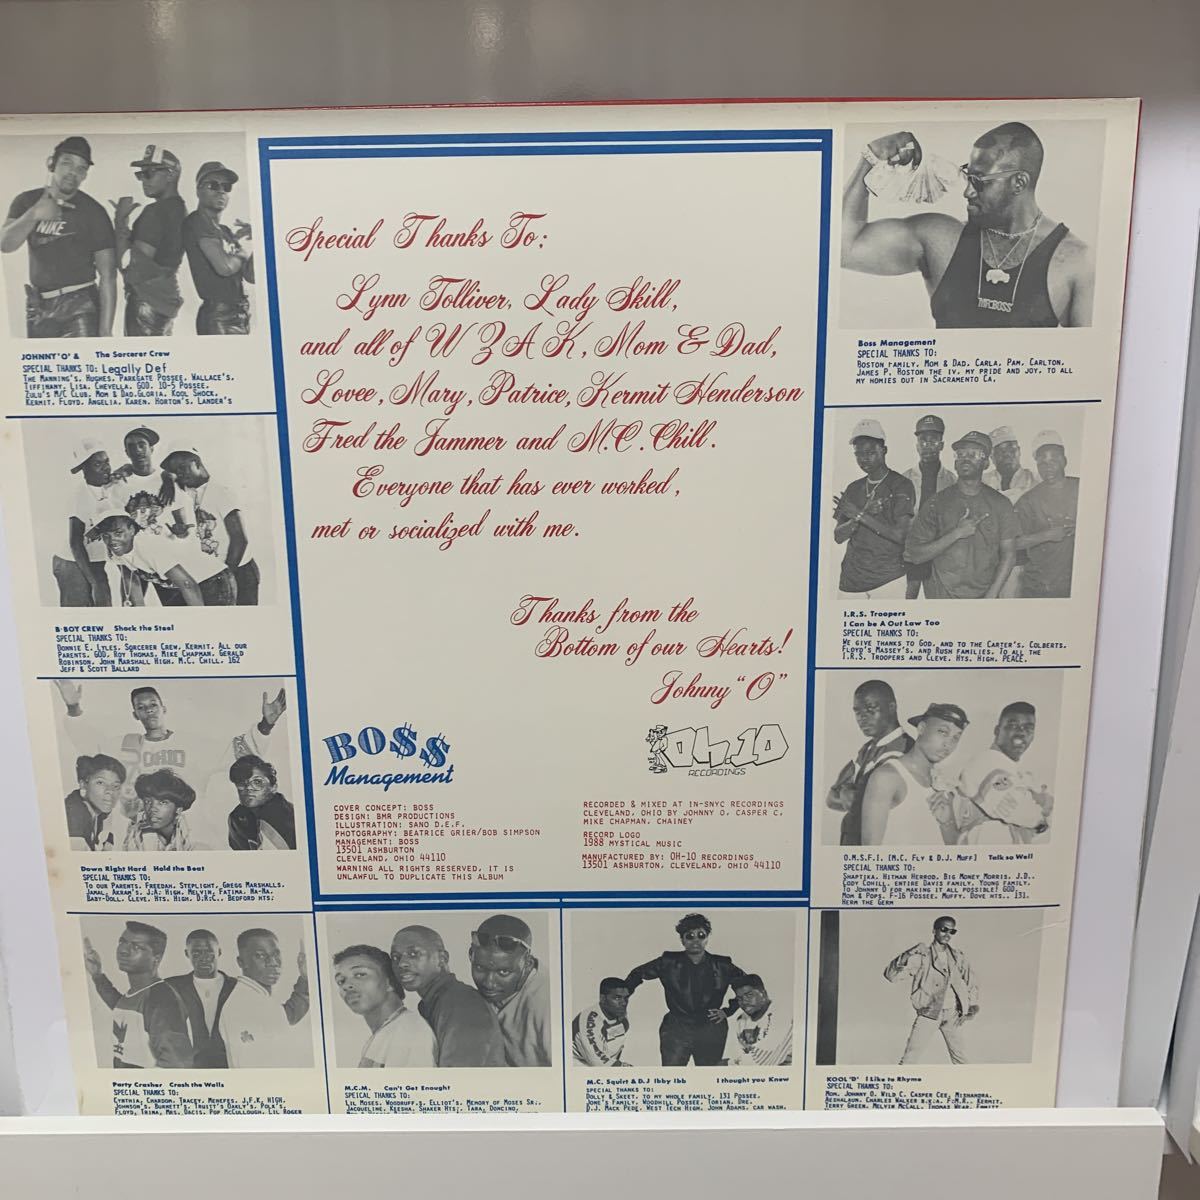 Special Thanks To:
Lynn Tolliver, Lady Skill,
and all of WZAK, Mom & Dad,
Lovee, Mary, Patrice, Kermit Henderson
Fred the Jammer and M.C. Chill.
Everyone that has ever worked,
met or socialized with me.
Thanks from the
Bottom of our Hearts!
Johnny "O"
BO$$
Management
Oh.10
RECORDINGS
COVER CONCEPT: BOSS
DESIGN: BMR PRODUCTIONS
ILLUSTRATION: SANO D.E.F.
PHOTOGRAPHY: BEATRICE GRIER/BOB SIMPSON
MANAGEMENT: BOSS
13501 ASHBURTON
CLEVELAND, OHIO 44110
WARNING ALL RIGHTS RESERVED, IT IS
UNLAWFUL TO DUPLICATE THIS ALBUM
RECORDED & MIXED AT IN-SNYC RECORDINGS
CLEVELAND, OHIO BY JOHNNY O, CASPER C,
MIKE CHAPMAN, CHAINEY
RECORD LOGO
1988 MYSTICAL MUSIC
MANUFACTURED BY: OH-10 RECORDINGS
13501 ASHBURTON, CLEVELAND, OHIO 44110
NIKE
JOHNNY "O" & The Sorcerer Crew
SPECIAL THANKS TO: Legally Def
THE MANNING'S, HUGHES, PARKGATE POSSEE, WALLACE'S,
TIFFINANY, LISA, CHEVELLA, GOD, 10-5 POSSEE,
ZULU'S M/C CLUB, MOM & DAD, GLORIA, KOOL SHOCK,
KERMIT, FLOYD, ANGELIA, KAREN, HORTON'S, LANDER'S
B-BOY CREW Shock the Steel
SPECIAL THANKS TO:
DONNIE E. LYLES, SORCERER CREW, KERMIT, ALL OUR
PARENTS, GOD, ROY THOMAS, MIKE CHAPMAN, GERALD
ROBINSON, JOHN MARSHALL HIGH, M.C. CHILL, 162
JEFF & SCOTT BALLARD
OHIO
Down Right Hard Hold the Beat
SPECIAL THANKS TO:
TO OUR PARENTS, FREEDAH, STEPLIGHT, GREGG MARSHALLS,
JAMAL, AKRAM'S, J.A. HIGH, MELVIN, FATIMA, NA-NA,
BABY-DOLL, CLEVE. HTS. HIGH, D.R.C., BEDFORD HTS.
Party Crasher Crash the Walls
SPECIAL THANKS TO:
CYNTHIA, CHARSON, TRACEY, MENEFES, J.F.K. HIGH,
JOHNSON'S, BURNETT'S, TRUITT'S OAKLY'S, POLK'S,
FLOYD, TRINA, MRS. DAVIS, POP MCCULLOUGH, LIL ROGER
M.C.M. Can't Get Enought
SPECICAL THANKS TO:
LIL MOSES, WOODRUFF'S, ELLIOT'S, MEMORY OF MOSES SR.,
JACQUELINE, KEESHA, SHAKER HTS., TARA, DONCINO,
M.C. Squirt & D.J Ibby Ibb I thought you Knew
SPECIAL THANKS TO:
DOLLY & SKEET, TO MY WHOLE FAMILY, 131 POSSEE,
JONE'S FAMILY, WOODHILL POSSEE, TORIAN, DRE,
D.J. MACK PEDE, WEST TECH HIGH, JOHN ADAMS, CAR WASH,
MR.BOSS
Boss Management
SPECIAL THANKS TO:
BOSTON FAMILY, MOM & DAD, CARLA, PAM, CARLTON,
JAMES P. BOSTON THE IV, MY PRIDE AND JOY, TO ALL
MY HOMIES OUT IN SACRAMENTO CA.
I.R.S. Troopers
I Can be A Out Law Too
SPECIAL THANKS TO:
WE GIVE THANKS TO GOD, AND TO THE CARTER'S, COLBERTS,
FLOYD'S, MASSEY'S, AND RUSH FAMILIES, TO ALL THE
I.R.S. TROOPERS AND CLEVE. HTS. HIGH, PEACE.
O.M.S.F.I. [M.C. FLY & D.J. MUFF] Talk so Well
SPECIAL THANKS TO:
SHAPTIKA, HITMAN HERROD, BIG MONEY MORRIS, J.D.,
CODY COHILL, ENTIRE DAVIS FAMILY, YOUNG FAMILY,
TO JOHNNY O FOR MAKING IT ALL POSSIBLE! GOD,
MOM & POPS, F-16 POSSEE, MUFFY, DOVE HTS., 131,
HERM THE GERM
KOOL 'D' I Like to Rhyme
SPECIAL THANKS TO:
MOM, JOHNNY O, WILD C, CASPER CEE, MISHANDRA,
AESHALAUN, CHARLES WALKER N.K.A. F.M.R., KERMIT,
TERRY GREEN, MELVIN MCCALL, THOMAS WEAR,